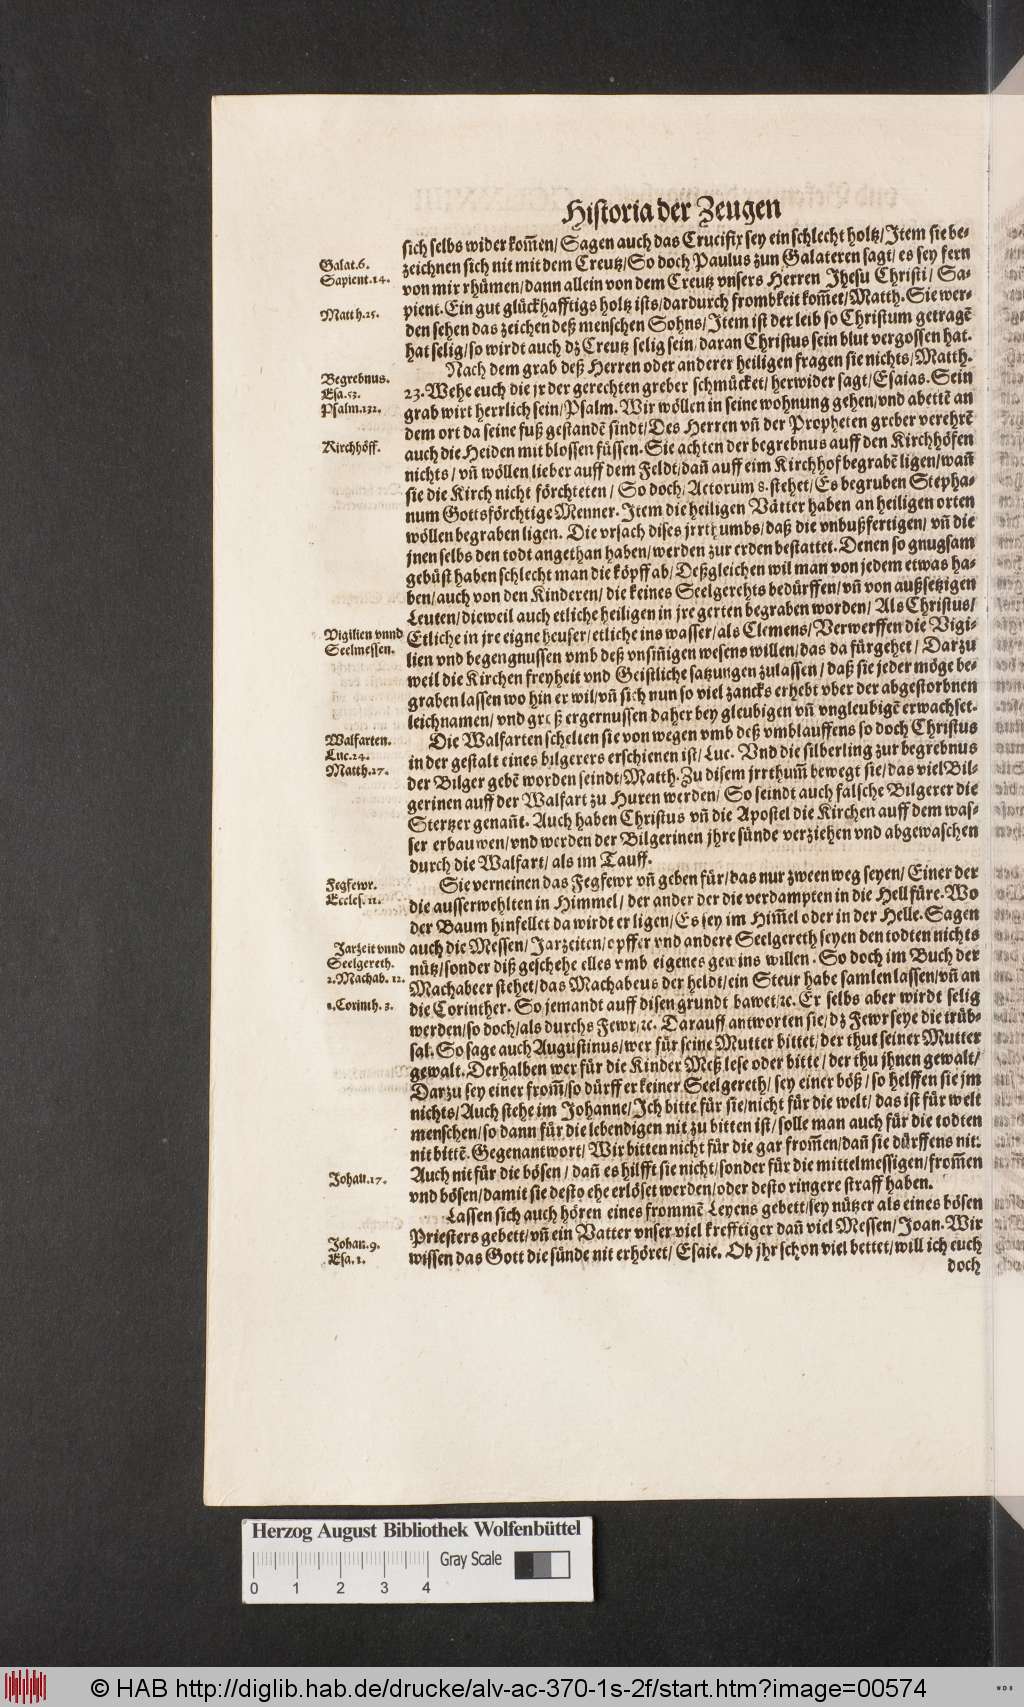 Historia der Zeugen
sich selbs wider kom̃en/ Sagen auch das Crucifix sey ein schlecht holtz/ Item sie be-
Galat.6.
zeichnen sich nit mit dem Creutz/ So doch Paulus zun Galateren sagt/ es sey fern
Sapient.14.
von mir rhümen/ dann allein von dem Creutz vnsers Herren Jhesu Christi/ Sa-
pient. Ein gut glückhafftigs holtz ists/ dardurch frombkeit kom̃et/ Matth. Sie wer-
Matth.25.
den sehen das zeichen deß menschen Sohns/ Item ist der leib so Christum getragẽ
hat selig/ so wirdt auch dz Creutz selig sein/ daran Christus sein blut vergossen hat.
Nach dem grab deß Herren oder anderer heiligen fragen sie nichts/ Matth.
Begrebnus.
23. Wehe euch die jr der gerechten greber schmücket/ herwider sagt/ Esaias. Sein
Esa.53.
grab wirt herrlich sein/ Psalm. Wir wöllen in seine wohnung gehen/ vnd abettẽ an
Psalm.132.
dem ort da seine fuß gestandẽ sindt/ Des Herren vñ der Propheten greber verehrẽ
auch die Heiden mit blossen füssen. Sie achten der begrebnus auff den Kirchhöfen
Kirchhöff.
nichts/ vñ wöllen lieber auff dem Feldt/ dañ auff eim Kirchhof begrabẽ ligen/ wañ
sie die Kirch nicht förchteten/ So doch/ Actorum 8. stehet/ Es begruben Stepha-
num Gottsförchtige Menner. Item die heiligen Vätter haben an heiligen orten
wöllen begraben ligen. Die vrsach dises jrrthumbs/ daß die vnbußfertigen/ vñ die
jnen selbs den todt angethan haben/ werden zur erden bestattet. Denen so gnugsam
gebüst haben schlecht man die köpff ab/ Deßgleichen wil man von jedem etwas ha-
ben/ auch von den Kinderen/ die keines Seelgerehts bedürffen/ vñ von außsetzigen
Leuten/ dieweil auch etliche heiligen in jre gerten begraben worden/ Als Christus/
Vigilien vnnd
Etliche in jre eigne heuser/ etliche ins wasser/ als Clemens/ Verwerffen die Vigi-
Seelmessen.
lien vnd begengnussen vmb deß vnsiñigen wesens willen/ das da fürgehet/ Darzu
weil die Kirchen freyheit vnd Geistliche satzungen zulassen/ daß sie jeder möge be-
graben lassen wo hin er wil/ vñ sich nun so viel zancks erhebt vber der abgestorbnen
leichnamen/ vnd groß ergernussen daher bey gleubigen vñ vngleubigẽ erwachset.
Walfarten.
Die Walfarten schelten sie von wegen vmb deß vmblauffens so doch Christus
Luc.24.
in der gestalt eines bilgerers erschienen ist/ Luc. Vnd die silberling zur begrebnus
Matth.27.
der Bilger gebẽ worden seindt/ Matth. Zu disem jrrthum̃ bewegt sie/ das viel Bil-
gerinen auff der Walfart zu Huren werden/ So seindt auch falsche Bilgerer die
Stertzer genañt. Auch haben Christus vñ die Apostel die Kirchen auff dem was-
ser erbauwen/ vnd werden der Bilgerinen jhre sünde verziehen vnd abgewaschen
durch die Walfart/ als im Tauff.
Fegfewr.
Sie verneinen das Fegfewr vñ geben für/ das nur zween weg seyen/ Einer der
Eccles.11.
die ausserwehlten in Himmel/ der ander der die verdampten in die Hell füre. Wo
der Baum hinfellet da wirdt er ligen/ Es sey im Him̃el oder in der Helle. Sagen
Jarzeit vnnd
auch die Messen/ Jarzeiten/ opffer vnd andere Seelgereth seyen den todten nichts
Seelgereth.
nütz/ sonder diß geschehe alles vmb eigenes gewins willen. So doch im Buch der
2.Machab. 12.
Machabeer stehet/ das Machabeus der heldt/ ein Steur habe samlen lassen/ vñ an
1.Corinth. 3.
die Corinther. So jemandt auff disen grundt bawet/ ꝛc. Er selbs aber wirdt selig
werden/ so doch/ als durchs Fewr/ ꝛc. Darauff antworten sie/ dz Fewr seye die trüb-
sal. So sage auch Augustinus/ wer für seine Mutter bittet/ der thut seiner Mutter
gewalt. Derhalben wer für die Kinder Meß lese oder bitte/ der thu jhnen gewalt/
Darzu sey einer from̃/ so dürff er keiner Seelgereth/ sey einer böß/ so helffen sie jm
nichts/ Auch stehe im Johanne/ Ich bitte für sie/ nicht für die welt/ das ist für welt
menschen/ so dann für die lebendigen nit zu bitten ist/ solle man auch für die todten
nit bittẽ. Gegenantwort/ Wir bitten nicht für die gar from̃en/ dañ sie dürffens nit.
Auch nit für die bösen/ dañ es hilfft sie nicht/ sonder für die mittelmessigen/ from̃en
Johan.17.
vnd bösen/ damit sie desto ehe erlöset werden/ oder desto ringere straff haben.
Lassen sich auch hören eines frommẽ Leyens gebett/ sey nützer als eines bösen
Priesters gebett/ vñ ein Vatter vnser viel krefftiger dañ viel Messen/ Joan. Wir
Johan.9.
wissen das Gott die sünde nit erhöret/ Esaie. Ob jhr schon viel bettet/ will ich euch
Esa.1.
doch
Herzog August Bibliothek Wolfenbüttel
Gray Scale
0 1 2 3 4
© HAB http://diglib.hab.de/drucke/alv-ac-370-1s-2f/start.htm?image=00574